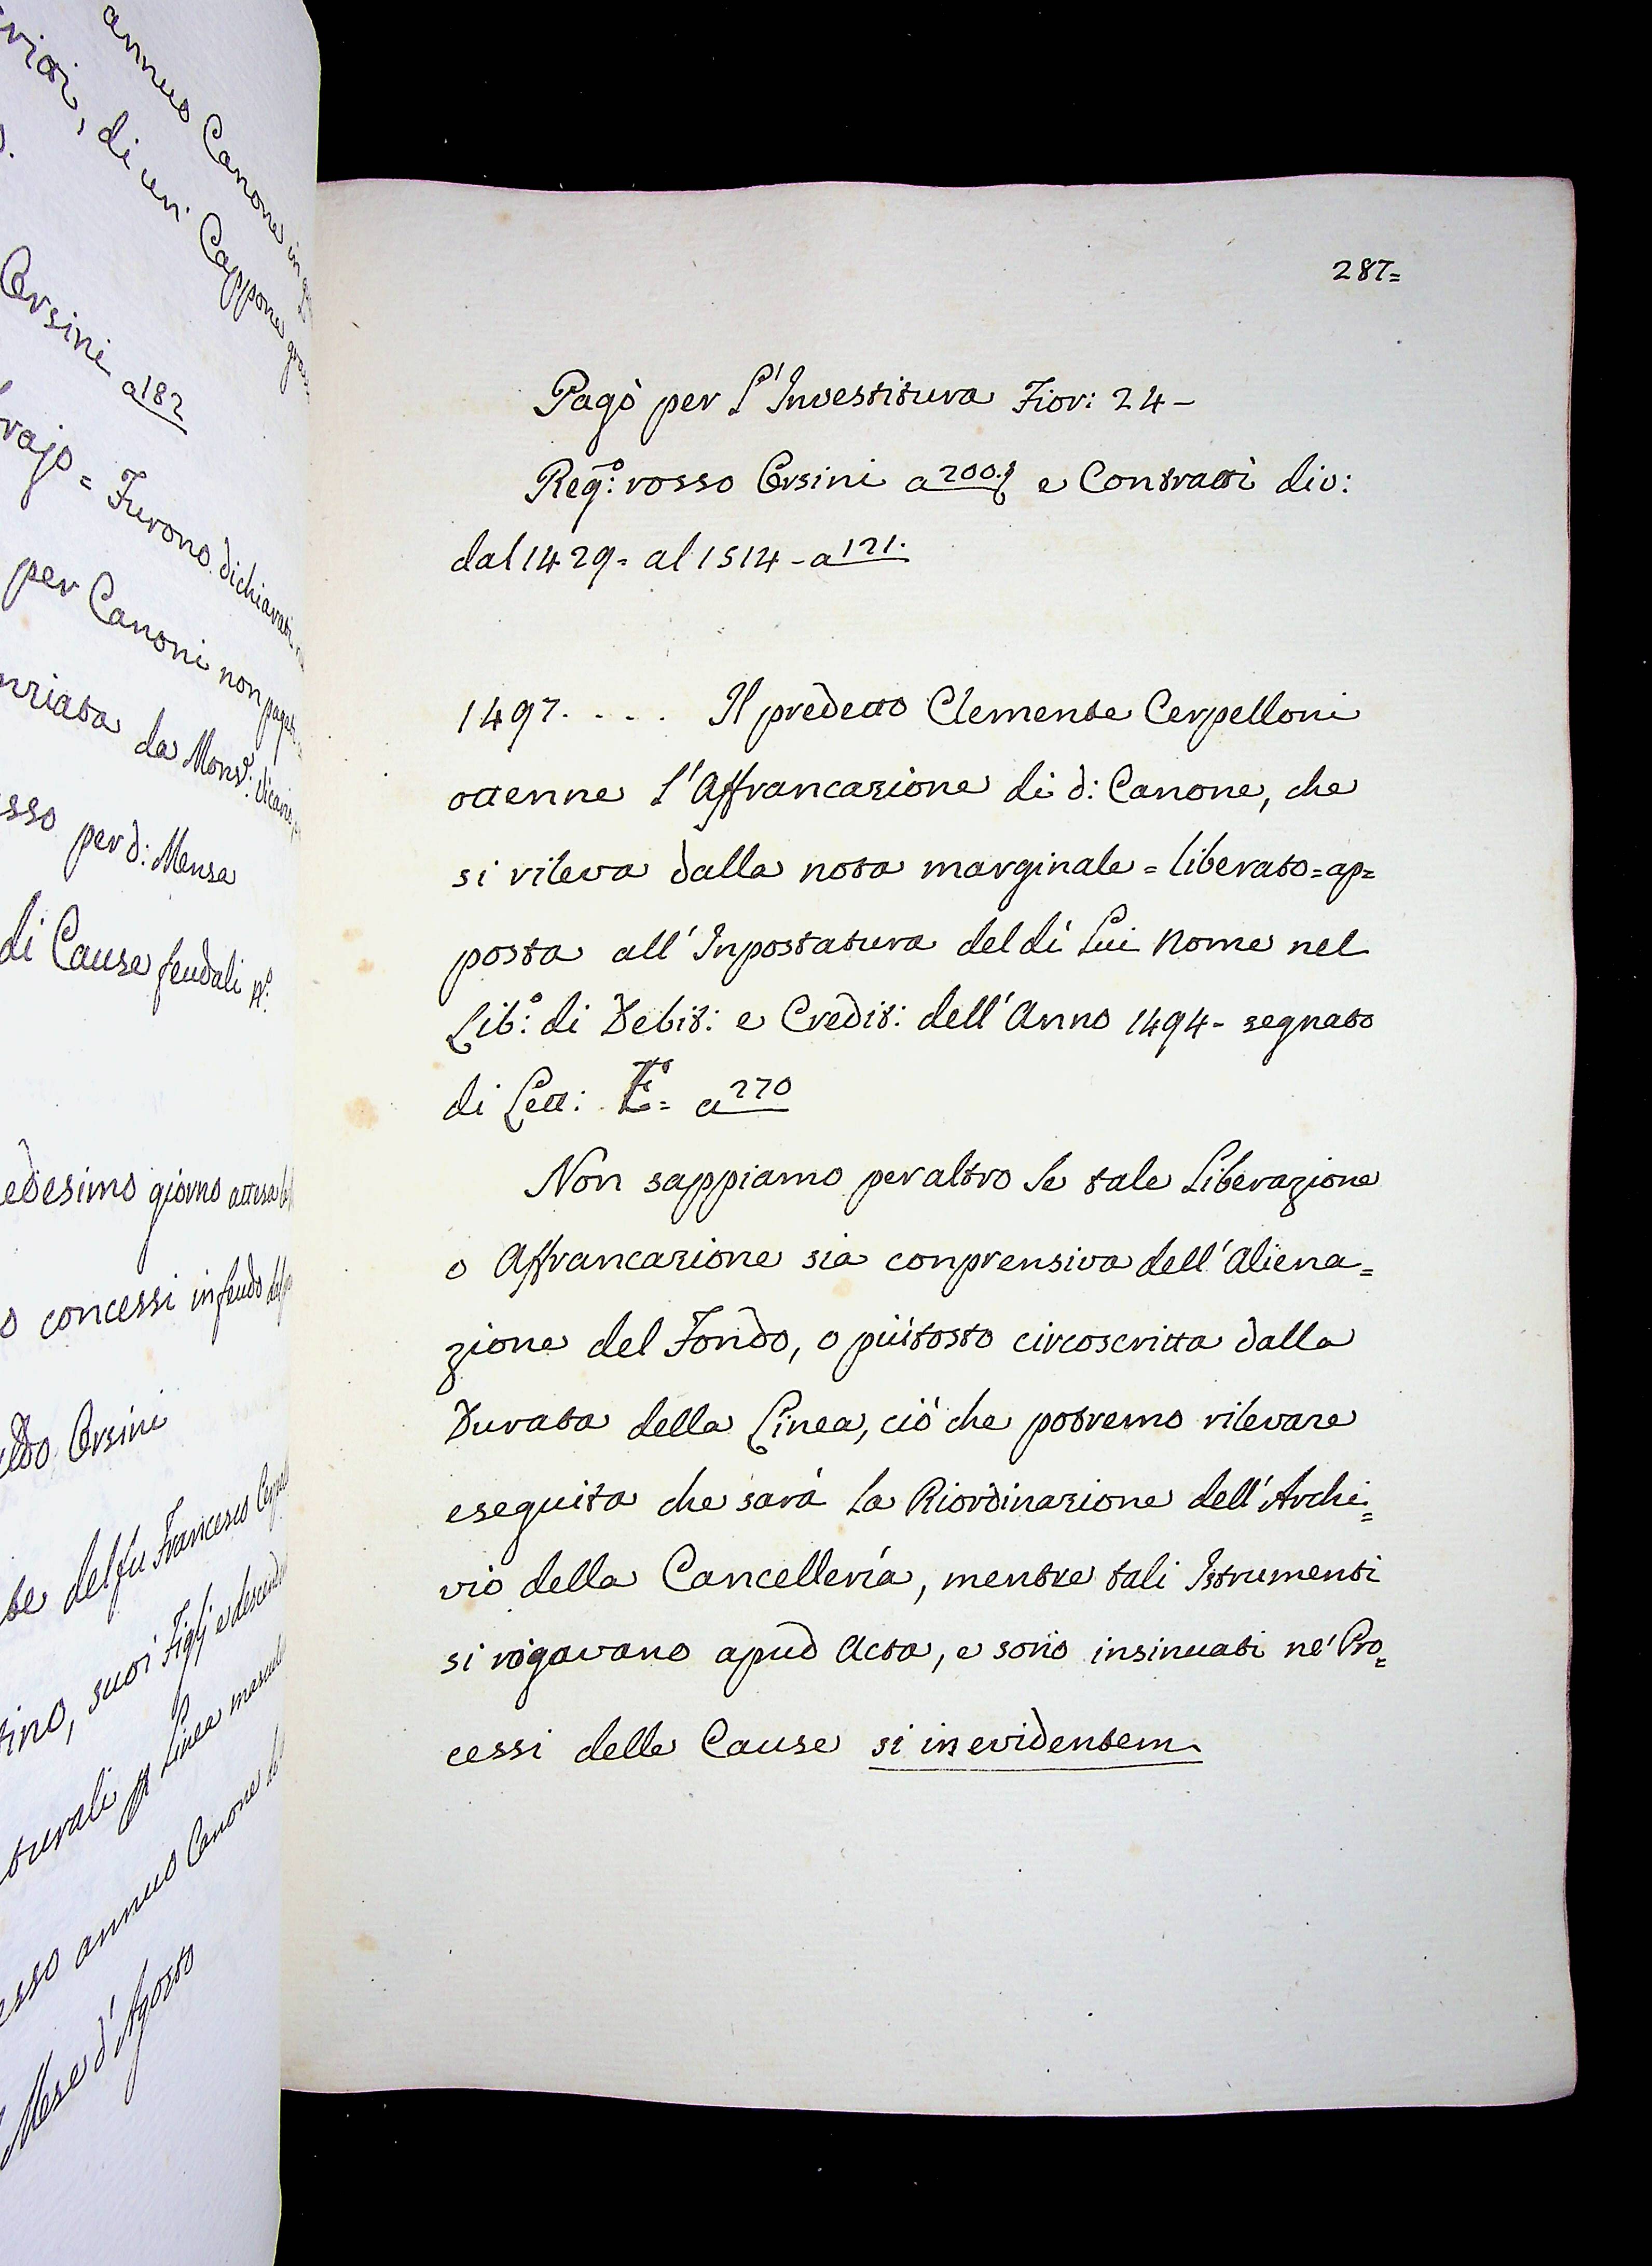 annuo Canone in
di un Cappone
Orsini a 182
Furono dichiarati
per Canoni non pagati
da Mons.r:
per d: Mensa
di Cause feudali N.o
giorno attesa
o concessi in feudo
Orsini
del fu Francesco
suoi Figlj e
Linea
annuo Canone
Mese d'Agosto
287=
Pagò per l'Investitura Fior: 24-
Reg:o rosso Orsini a 200. e Contratti div:
dal 1429= al 1514- a 121.
1497. . . . Il predetto Clemente Cerpelloni
ottenne l'Affrancazione di d: Canone, che
si rileva dalla nota marginale = liberato = ap=
posta all'Inpostatura del di Lui Nome nel
Lib:o di Debit: e Credit: dell'Anno 1494- segnato
di Lett: E= a 270
Non sappiamo peraltro se tale Liberazione
o Affrancazione sia conprensiva dell'Aliena=
zione del Fondo, o piùtosto circoscritta dalla
Durata della Linea, ciò che potremo rilevare
eseguita che sarà la Riordinazione dell'Archi=
vio della Cancellerìa, mentre tali Istrumenti
si rogavano apud Acta, e sono insinuati ne' Pro=
cessi delle Cause si in evidentem